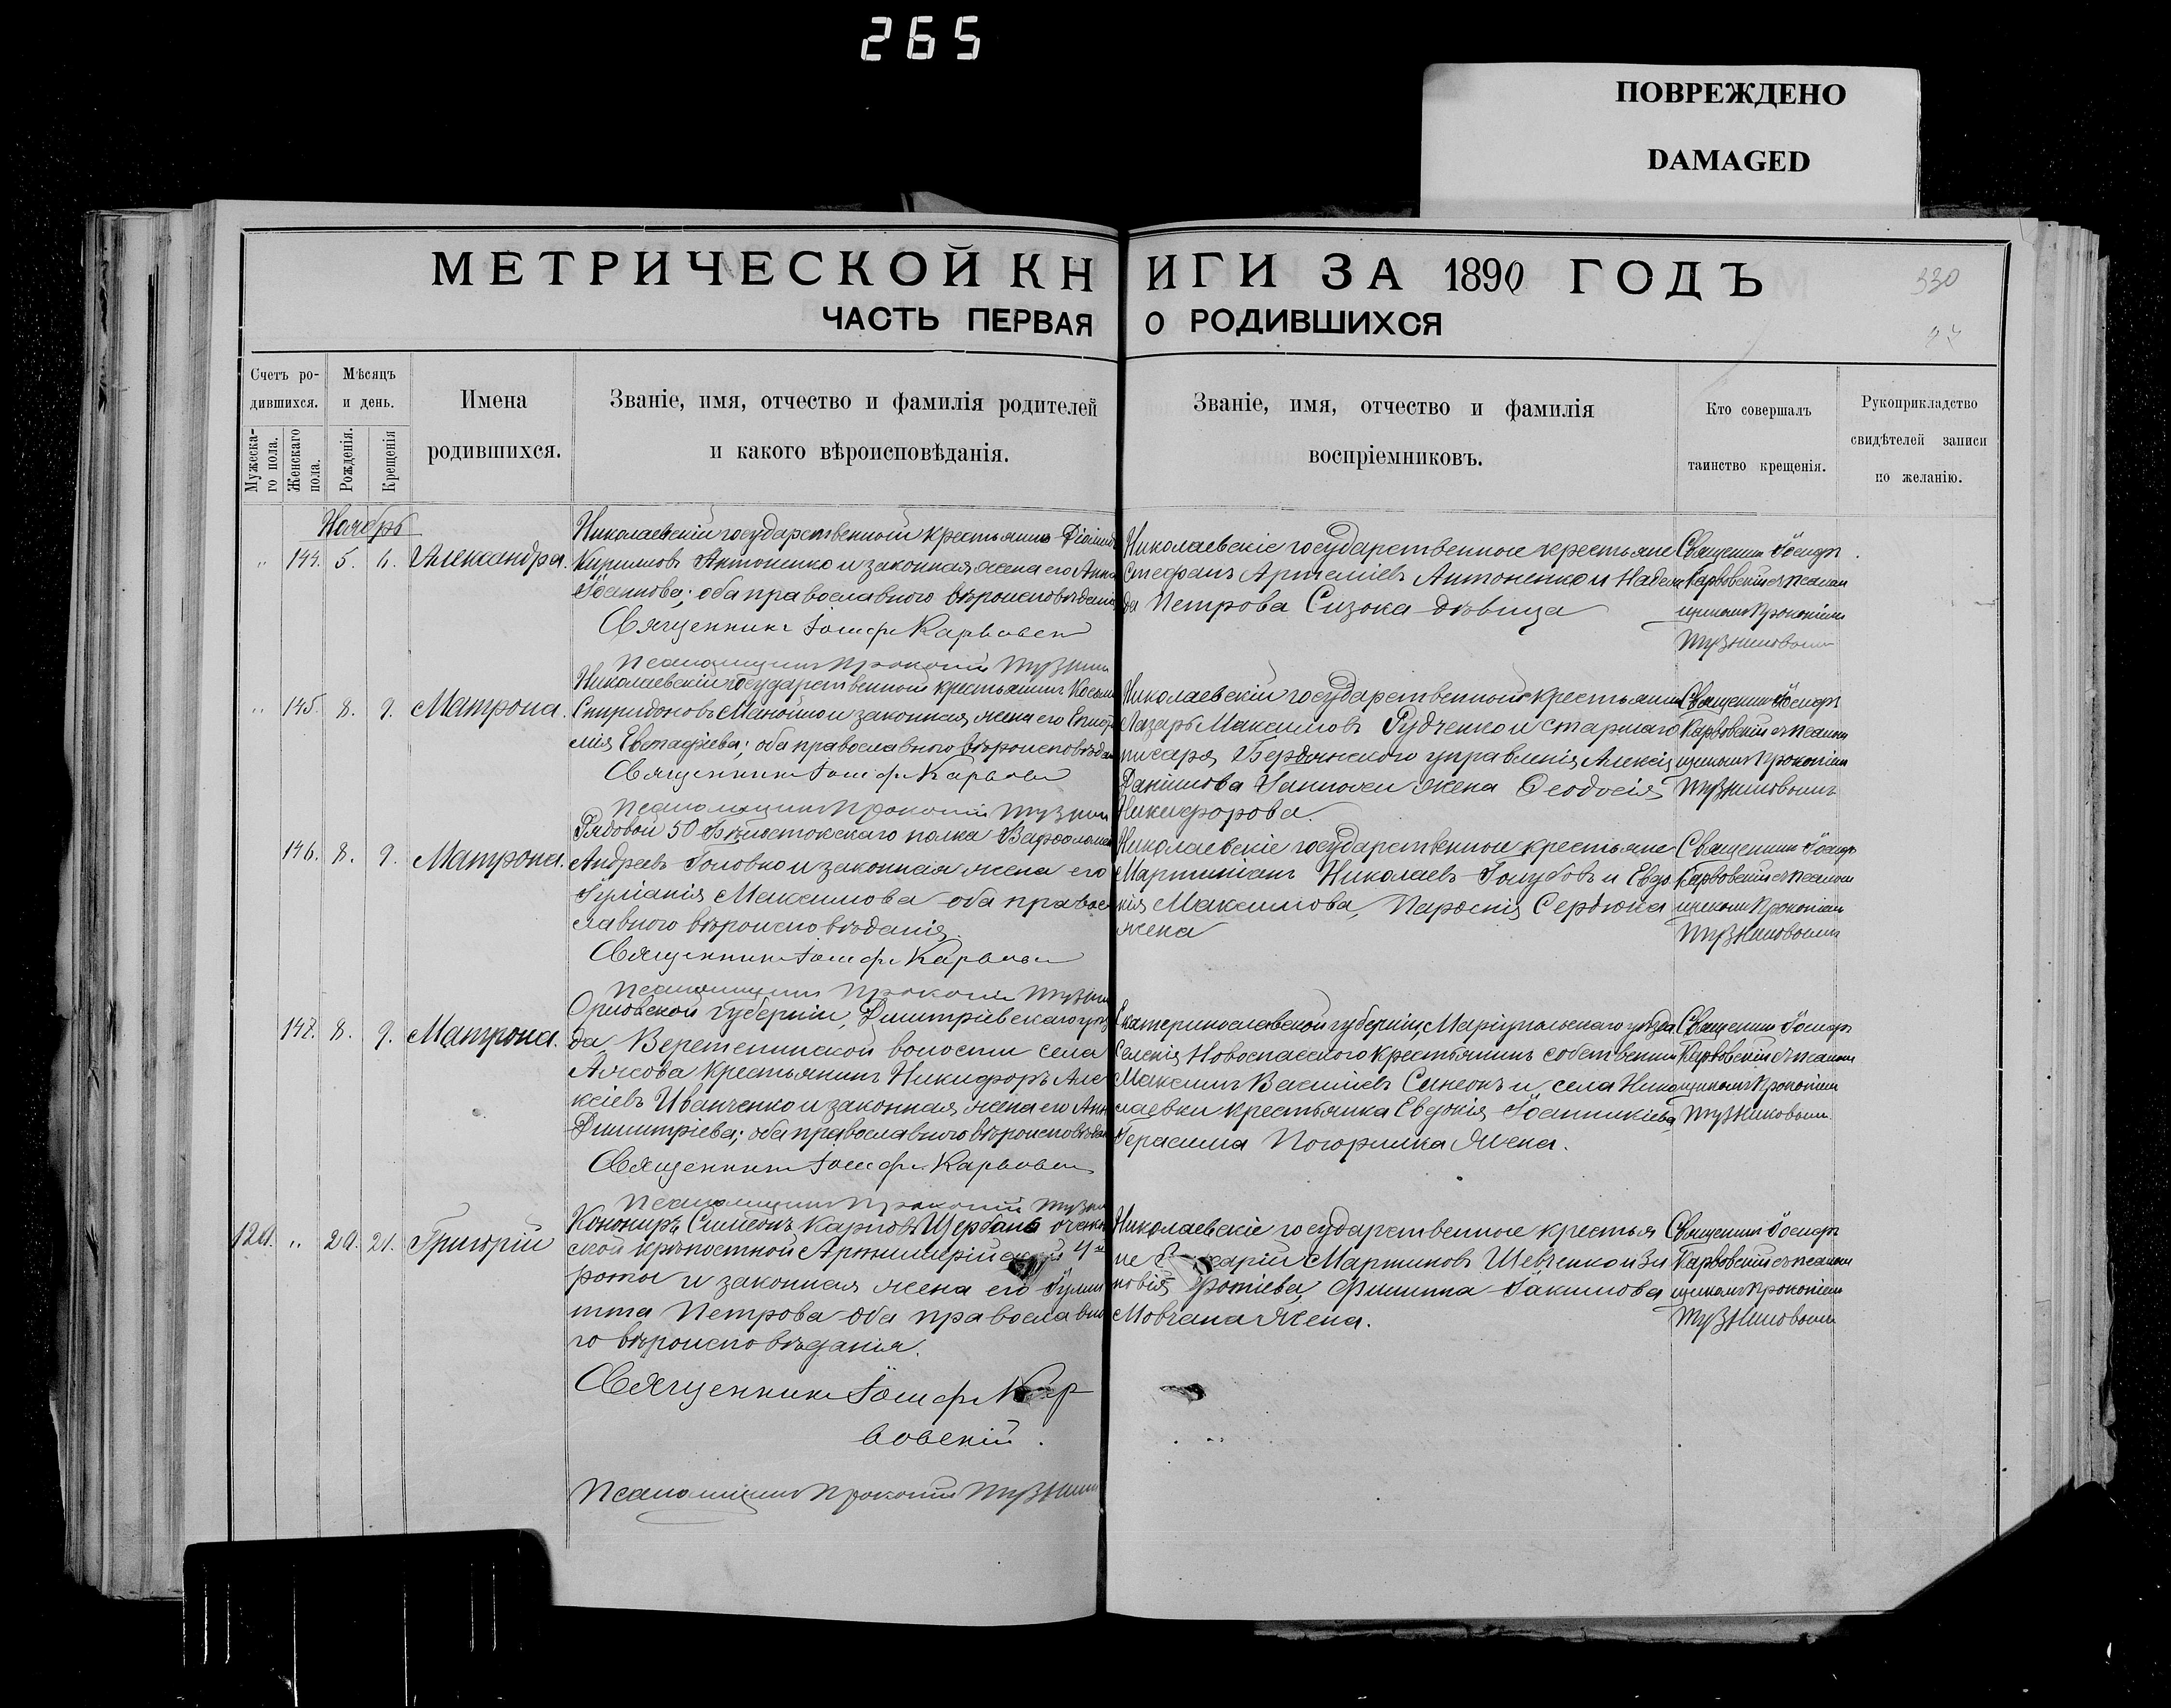 265
ПОВРЕЖДЕНО
DAMAGED
МЕТРИЧЕСКОЙ КНИГИ ЗА 1890 ГОДЪ
330
ЧАСТЬ ПЕРВАЯ О РОДИВШИХСЯ
Счетъ родившихся.
Мужескаго пола.
Женскаго пола.
Мѣсяцъ и день.
Рожденія.
Крещенія
Имена
родившихся.
Званіе, имя, отчество и фамилія родителей
и какого вѣроисповѣданія.
Званіе, имя, отчество и фамилія
воспріемниковъ.
Кто совершалъ
таинство крещенія.
Рукоприкладство
свидѣтелей записи
по желанію.
Ноябрь
„ 144. 5. 6. Александра.
Николаевскій государственный крестьянинъ
Кириловъ Антоненко и законная жена его Анна
Іоаннова; оба православнаго вѣроисповѣданія
Священникъ Іосифъ Карвовскі
Псаломщикъ Прокопій
Николаевскіе государственные крестьяне
Стефанъ Артеміевъ Антоненко и Надеж
да Петрова Сизока дѣвица
Священникъ Іосифъ
Карвовскій съ псалом
щикомъ Прокопіемъ
„ 145. 8. 9. Матрона.
Николаевскій государственный крестьянинъ Косьма
Спиридоновъ Манойло и законная жена его
Евстафіева; оба православнаго вѣроисповѣдан
Священникъ Іосифъ Карвовскі
Псаломщикъ Прокопій
Николаевскій государственный крестьянинъ
Лазарь Максимовъ Рудченко и старшаго
писаря Бердянскаго управленія Алексія
Данилова жена Феодосія
Никифорова.
Священникъ Іосифъ
Карвовскій съ псалом
щикомъ Прокопіемъ
146. 8. 9. Матрона.
Рядовой 50 Бѣлостокскаго полка Варфоломей
Андреевъ Головко и законная жена его
Іуліанія Максимова оба правос
лавнаго вѣроисповѣданія.
Священникъ Іосифъ Карвовскі
Псаломщикъ Прокопій
Николаевскіе государственные крестьяне
Мартиніанъ Николаевъ Голубовъ и Евдо
кія Максимова, Сердюка
жена
Священникъ Іосифъ
Карвовскій съ псалом
щикомъ Прокопіемъ
147. 8. 9. Матрона.
Орловской губерніи, Димитріевскаго уѣз
да, Веретенинской волости села
крестьянинъ Никифоръ Але
ксіевъ Иванченко и законная жена его Анна
Димитріева; оба православнаго вѣроисповѣдан
Священникъ Іосифъ Карвовскі
Псаломщикъ Прокопій
Екатеринославской губерніи, Маріупольскаго уѣзда
Селенія Новоспасскаго крестьянинъ собственникъ
Максимъ Василіевъ и села Нико
лаевки крестьянка Евдокія Іоанникіева
Герасима жена.
Священникъ Іосифъ
Карвовскій съ псалом
щикомъ Прокопіемъ
124. „ 20. 21. Григорій
Канониръ Симеонъ Карповъ Щербань
ской крѣпостной Артиллерійской 4й
роты и законная жена его Іули
тта Петрова оба православна
го вѣроисповѣданія.
Священникъ Іосифъ Кар
вовскій.
Псаломщикъ Прокопій
Николаевскіе государственные крестья
не Мартиновъ Шевченко и Зи
новія Фотіева, Филиппа Іакимова
Мовчана жена.
Священникъ Іосифъ
Карвовскій съ псалом
щикомъ Прокопіемъ